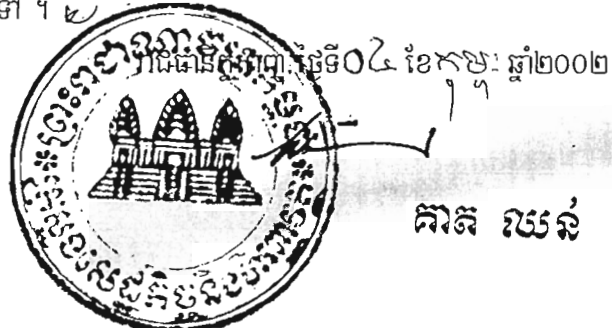 ទៅ ។
រាជធានីភ្នំពេញ ថ្ងៃទី០៤ ខែកុម្ភៈ ឆ្នាំ២០០២
ព្រះរាជាណាចក្រកម្ពុជា
ក្រសួងសេដ្ឋកិច្ចនិងហិរញ្ញវត្ថុ
គាត ឈន់